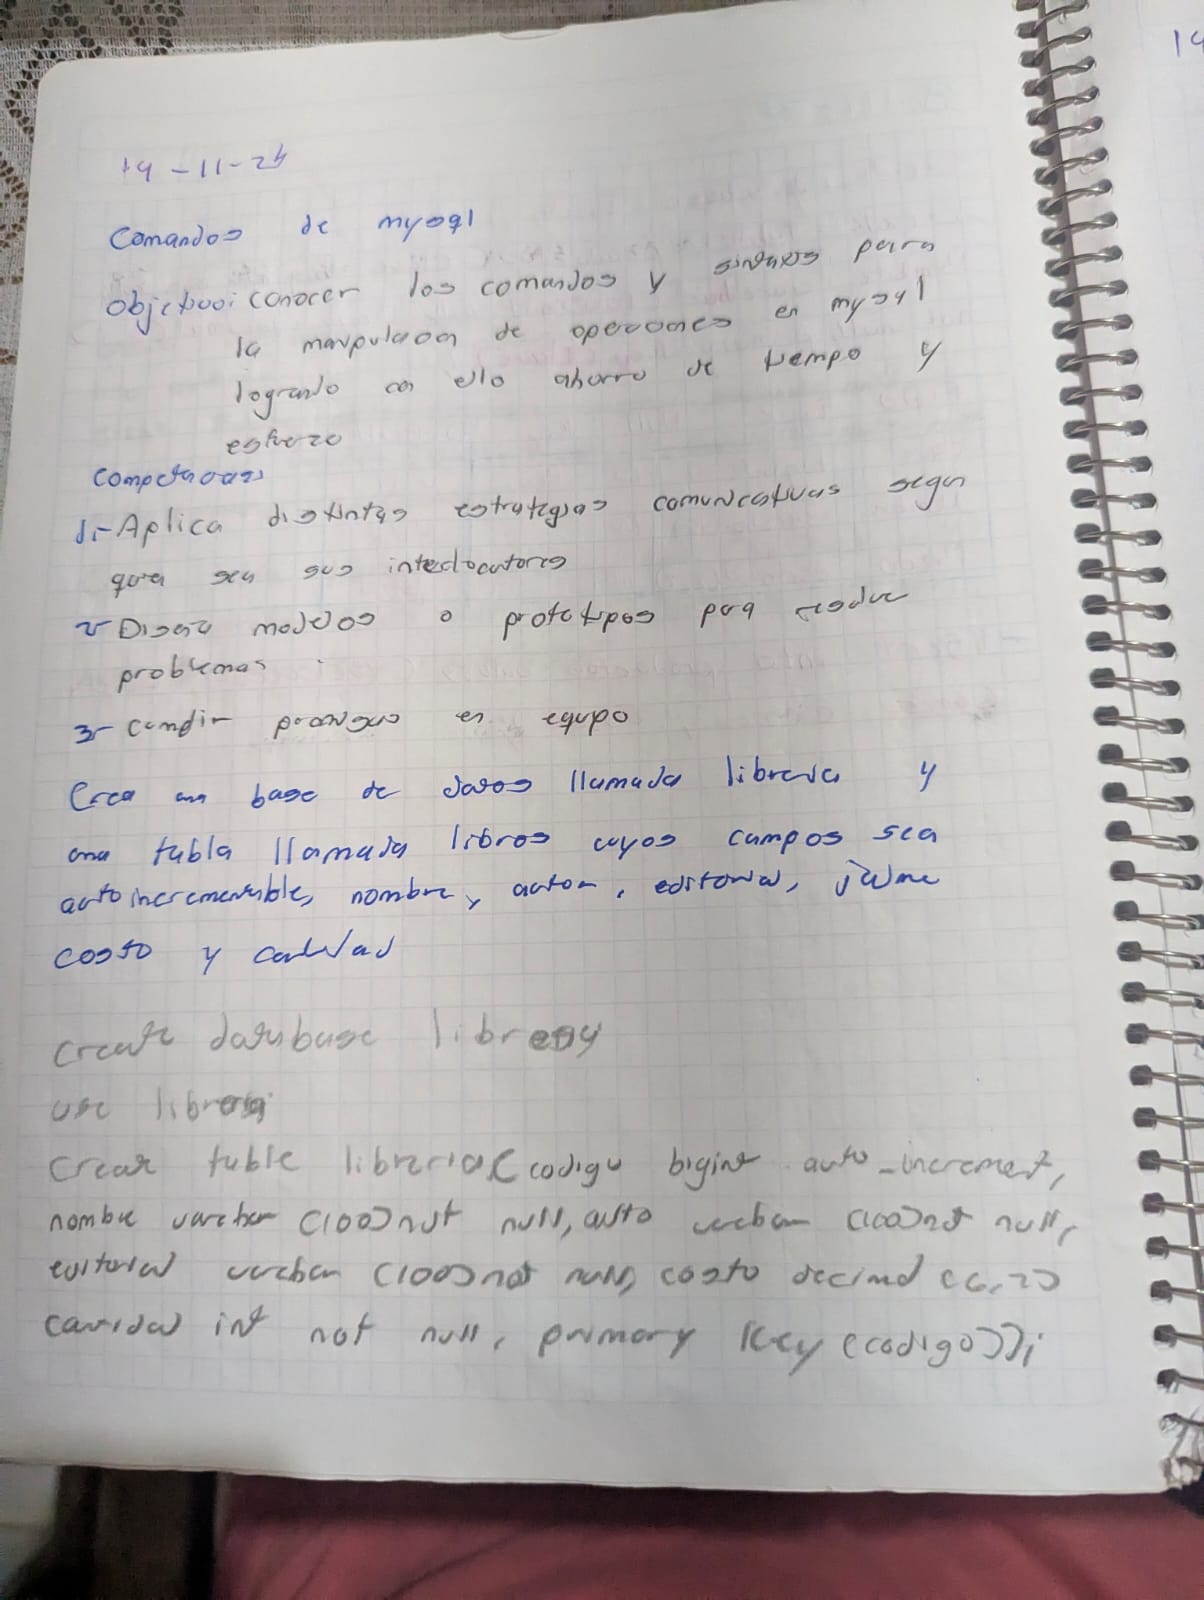 19-11-24
Comandos de mysql
Objetivo: conocer los comandos y sintaxis para
la manipulacion de operaciones en mysql
logrando con ello ahorro de tiempo y
esfuerzo
Competencias
1.- Aplica distintas estrategias comunicativas segun
quien sea sus interlocutores
2- Diseña modelos o prototipos para resolver
problemas
3- en equipo
Crea una base de datos llamada libreria y
una tabla llamada libros cuyos campos sea
autoincrementable, nombre, autor, editorial,
costo y cantidad
Create database
use libreria
Crear table libreria( codigo bigint auto_increment,
nombre varchar (100) not null, auto varchar (100) not null,
editorial varchar (100) not null, costo decimal (6,2)
cantidad int not null, primary key (codigo));
19